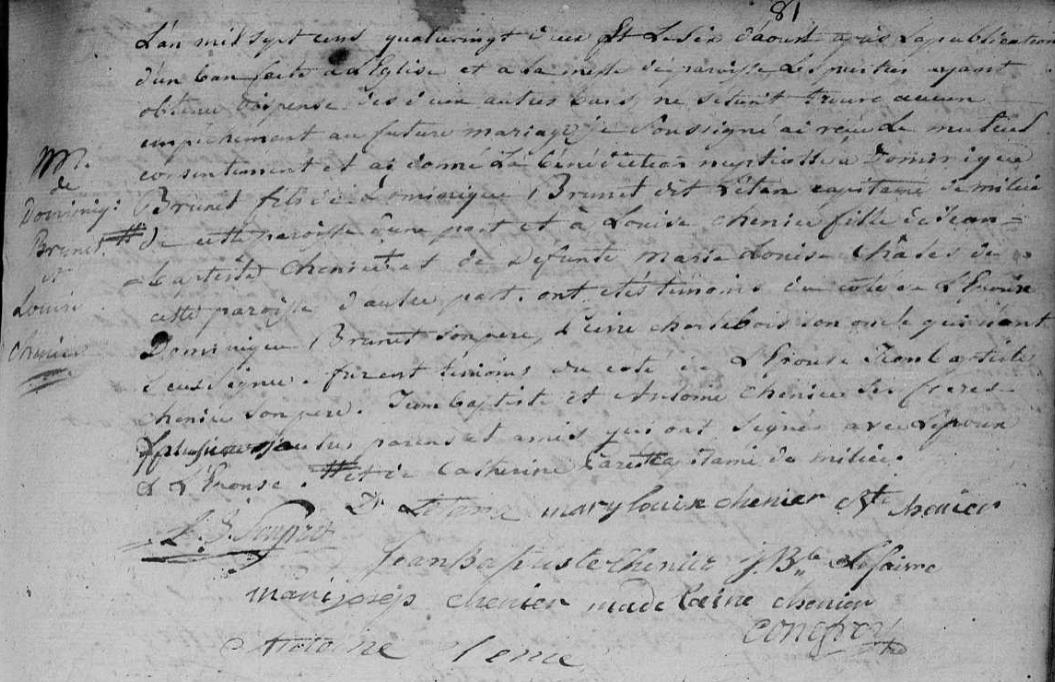 81
L'an mil sept cens quatrevingt deux Et Le six d'aoust après La publication
d'un ban faite a L'Eglise et a la messe de paroisse Les parties ayant
obtenu dispense des deux autres bans, ne s'etant trouvé aucun
empechement au future mariage, je soussigné ai reçu Le mutuel
consentement et ai donné La bénédiction nuptialle a Dominique
Brunet fils de Dominique Brunet dit Létan capitaine de milice
# de cette paroisse d'une part et a Louise chenier fille de Jean=
baptiste chenier et de Defunte Marie Louise de
cette paroisse d'autre part. ont étés témoins du coté de L'Epoux
Dominique Brunet son pere, charlebois son oncle qui n'ont
sceu signer. furent témoins du coté de L'Epouse Jean baptiste
chenier son pere. Jean baptiste et Antoine chenier ses freres
& plusieurs autres parens et amis qui ont signés avec L'epoux
& L'Epouse. # et de Catherine de milice.
M.
de
Dominiq:
Brunet
et
Louise
chenier
D Létan mary louise chenier chenier
Jean Baptiste Chenier J. B.te
marijosep chenier madelaine chenier
Antoine